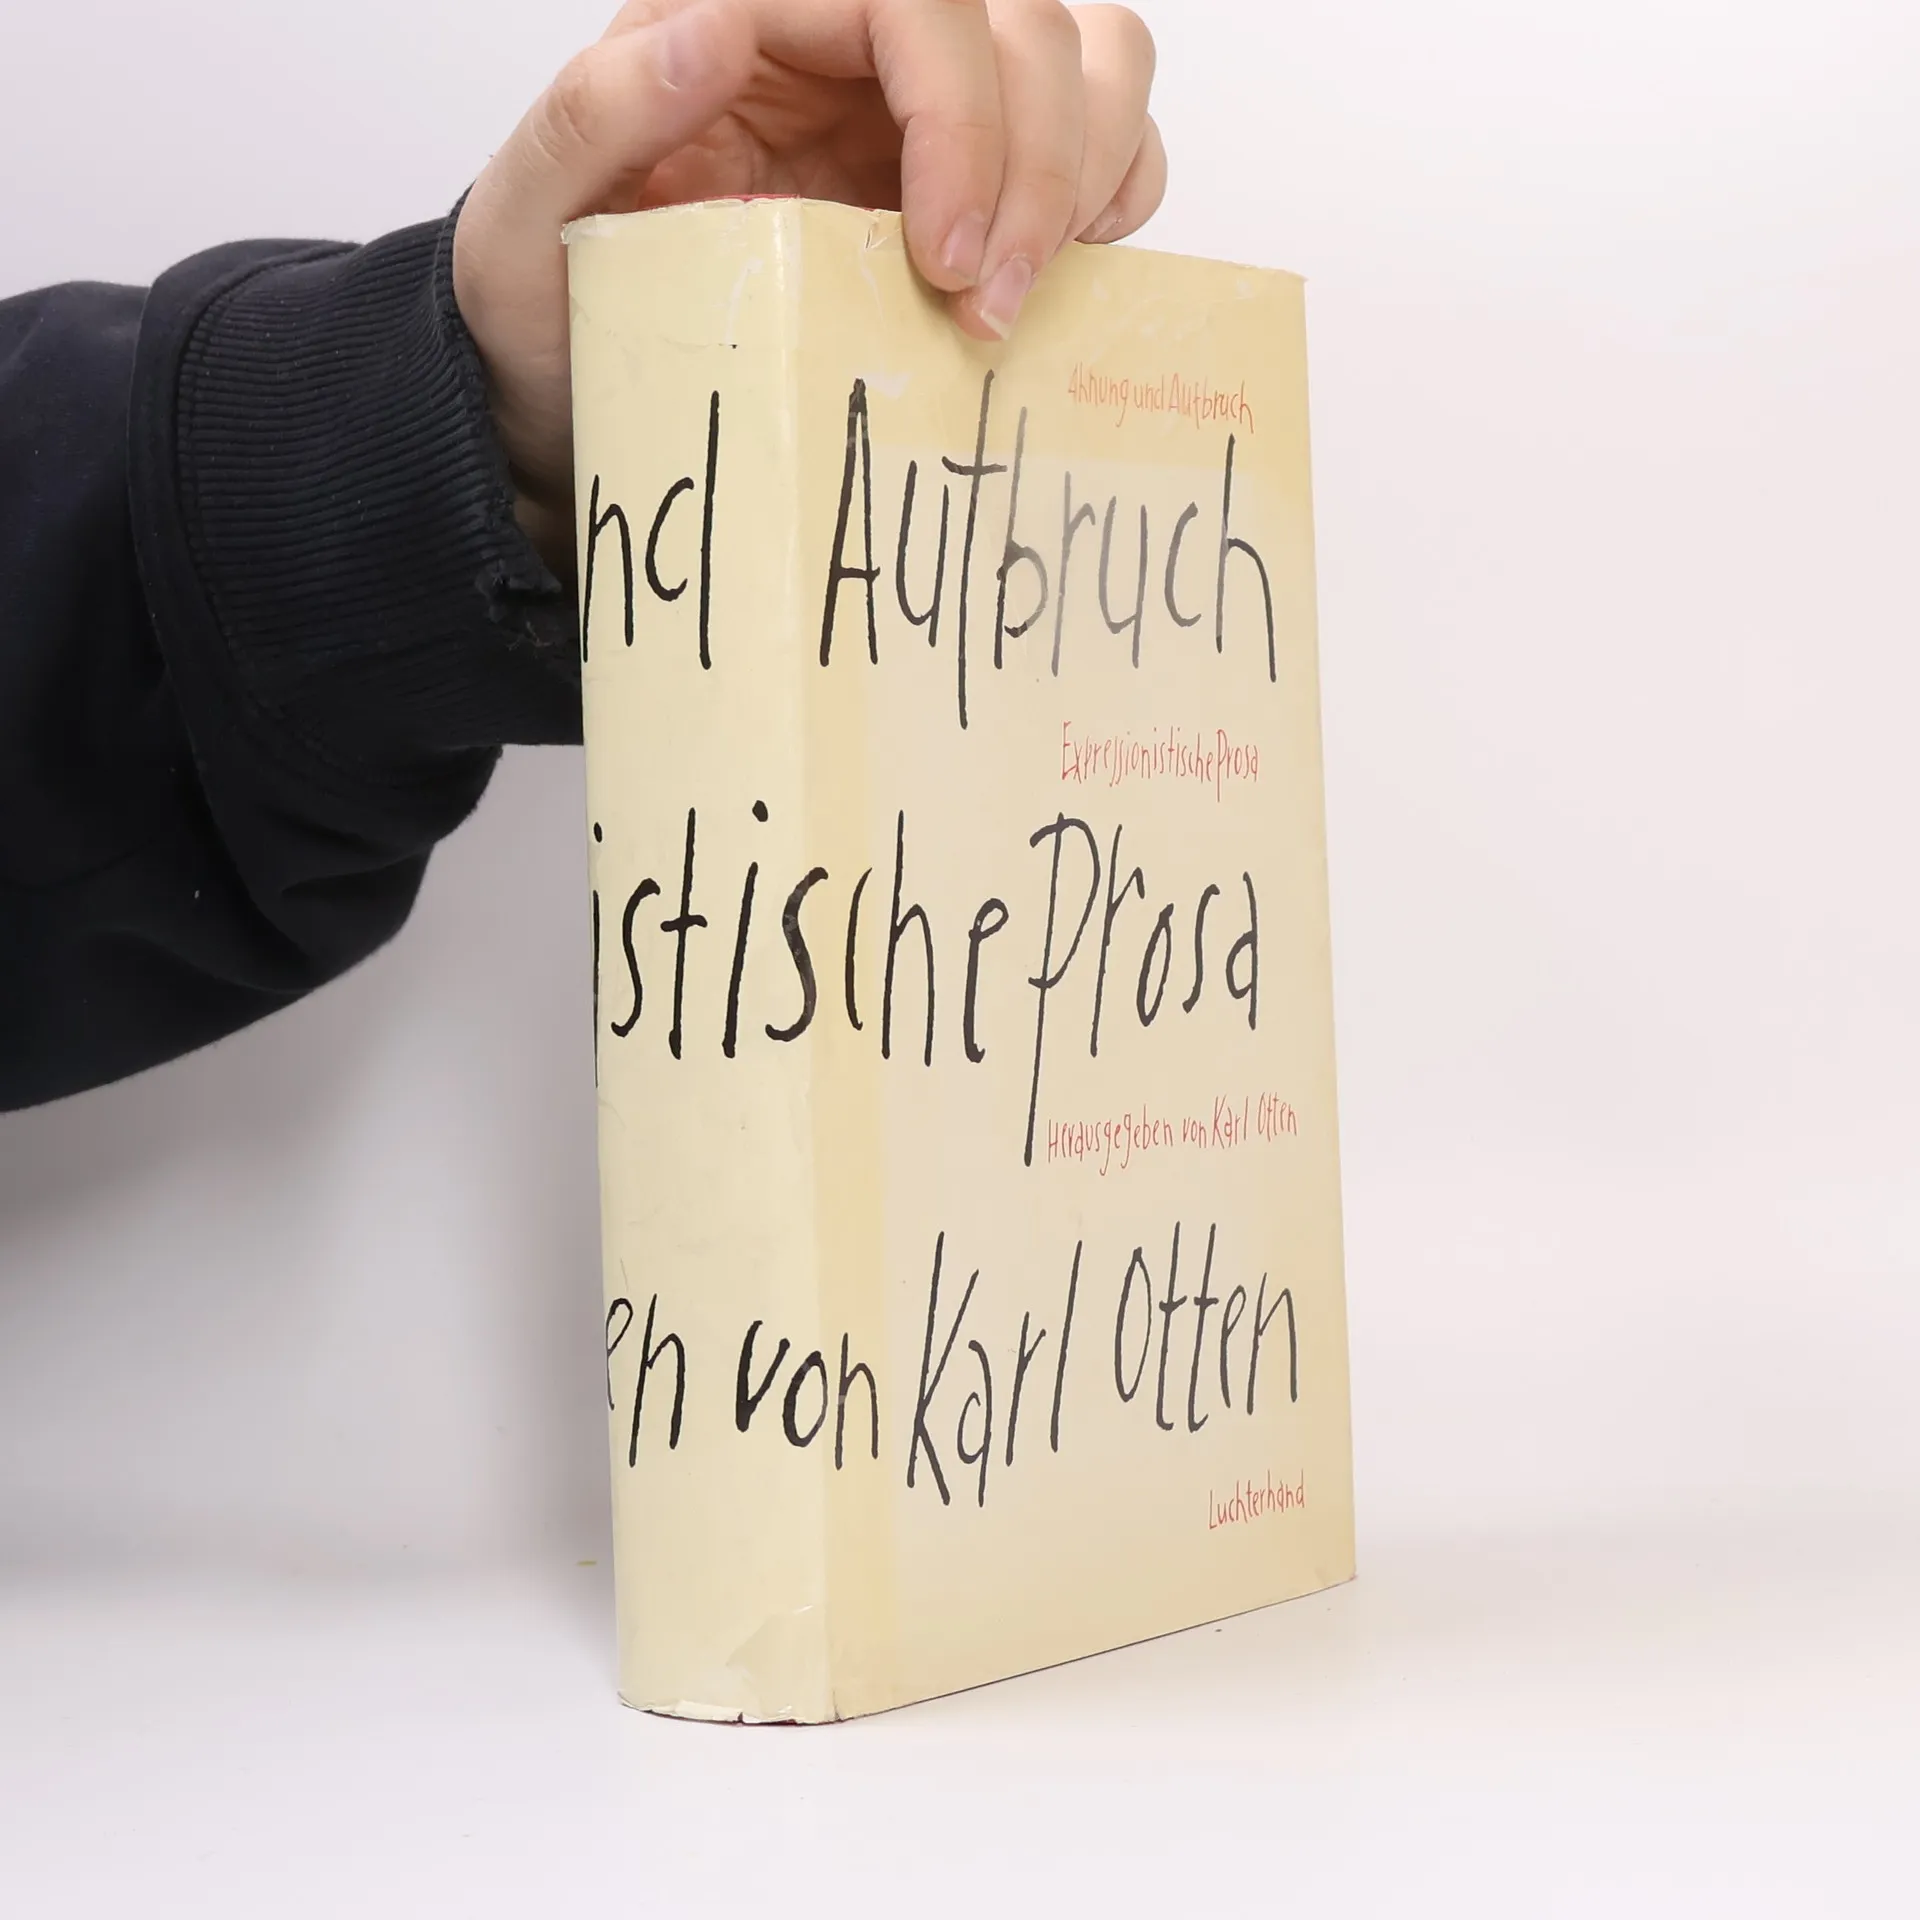 Ahnung und Aufbruch
nd Aufbruch
Expressionistische Prosa
istische Prosa
Herausgegeben von Karl Otten
en von Karl Otten
Luchterhand